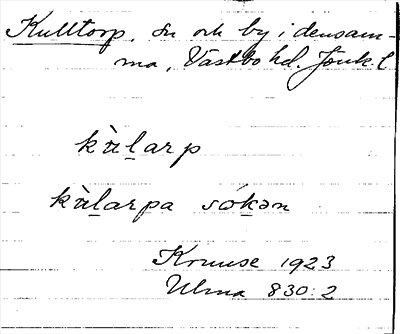 Kulltorp, sn och by i densam-
ma, Västbo hd. Jönk. l
kùlarp
kùlarpa sókən
Kruuse 1923
Ulma 830:2